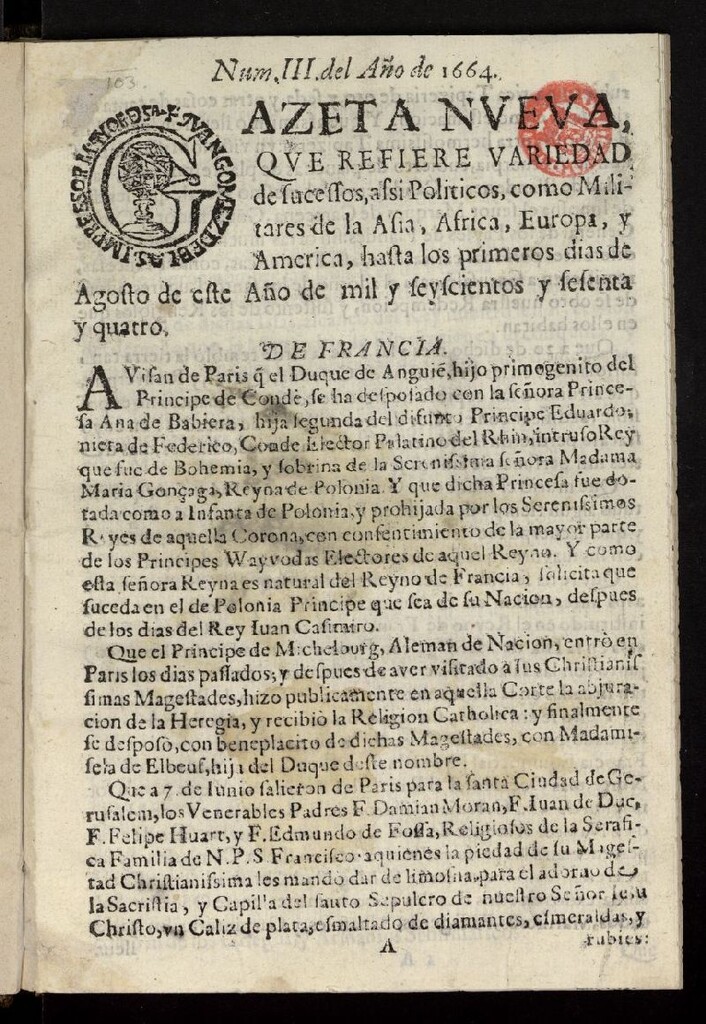 103
Num. III. del Año de 1664.
IMPRESSOR MAYOR DSA. F. JUAN GOMEZ DE BLAS.
G
AZETA NVEVA,
QVE REFIERE VARIEDAD
de sucessos, assi Politicos, como Mili-
tares de la Asia, Africa, Europa, y
America, hasta los primeros dias de
Agosto de este Año de mil y seyscientos y sesenta
y quatro.
DE FRANCIA.
AVisan de Paris q̃ el Duque de Anguiẽ, hijo primogenito del
Principe de Condè, se ha desposado con la señora Prince-
sa Ana de Babiera, hija segunda del difunto Principe Eduardo;
nieta de Federico, Conde Elector Palatino del Rhin, intruso Rey
que fue de Bohemia, y sobrina de la Serenissima señora Madama
Maria Gonçaga, Reyna de Polonia. Y que dicha Princesa fue do-
tada como a Infanta de Polonia, y prohijada por los Serenissimos
Reyes de aquella Corona, con consentimiento de la mayor parte
de los Principes Wayvodas Electores de aquel Reyno. Y como
esta señora Reyna es natural del Reyno de Francia, solicita que
suceda en el de Polonia Principe que sea de su Nacion, despues
de los dias del Rey Iuan Casimiro.
Que el Principe de Michelourg, Aleman de Nacion, entrò en
Paris los dias passados, y despues de aver visitado a sus Christianis
simas Magestades, hizo publicamente en aquella Corte la abjura-
cion de la Heregia, y recibiò la Religion Catholica: y finalmente
se desposò, con beneplacito de dichas Magestades, con Madami-
sela de Elbeuf, hija del Duque deste nombre.
Que a 7. de Iunio salieron de Paris para la santa Ciudad de Ge-
rusalem, los Venerables Padres F. Damian Moran, F. Iuan de Duc,
F. Felipe Huart, y F. Edmundo de Fossa, Religiosos de la Serafi-
ca Familia de N. P. S. Francisco: a quienes la piedad de su Mages-
tad Christianissima les mandò dar de limosna, para el adorno de
la Sacristia, y Capilla del santo Sepulcro de nuestro Señor Iesu
Christo, vn Caliz de plata, esmaltado de diamantes, esmeraldas, y
A
rubies: